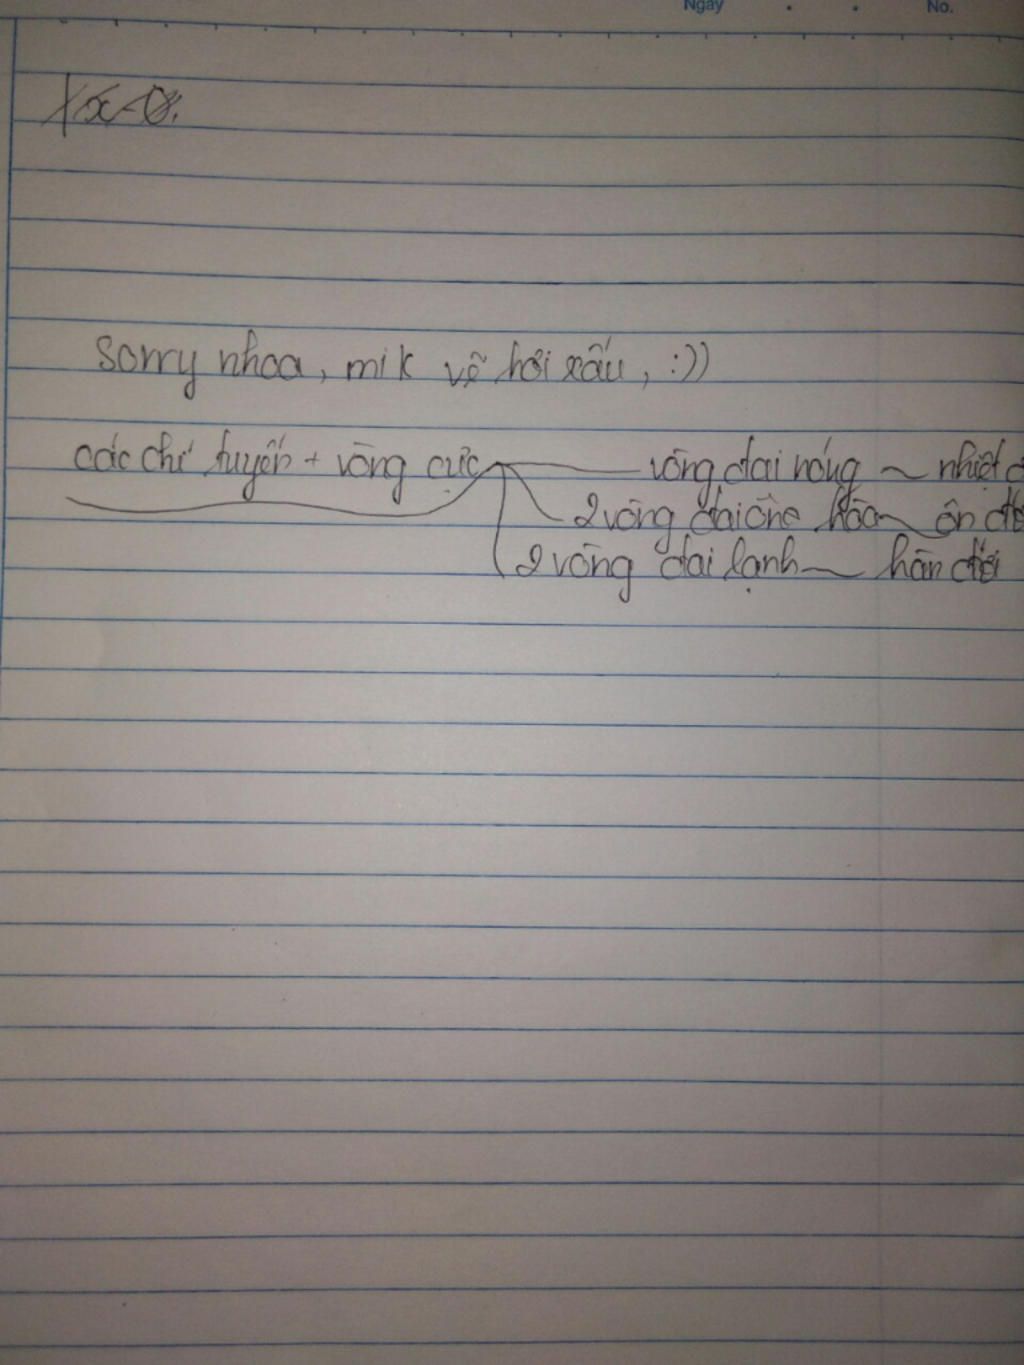 Ngày No.
sorry nhoa, mik vẽ hơi xấu, :))
các chí tuyến + vòng cực vòng đai nóng ~ nhiệt đ
2 vòng đai ôn hòa ~ ôn đớ
2 vòng đai lạnh ~ hàn đới